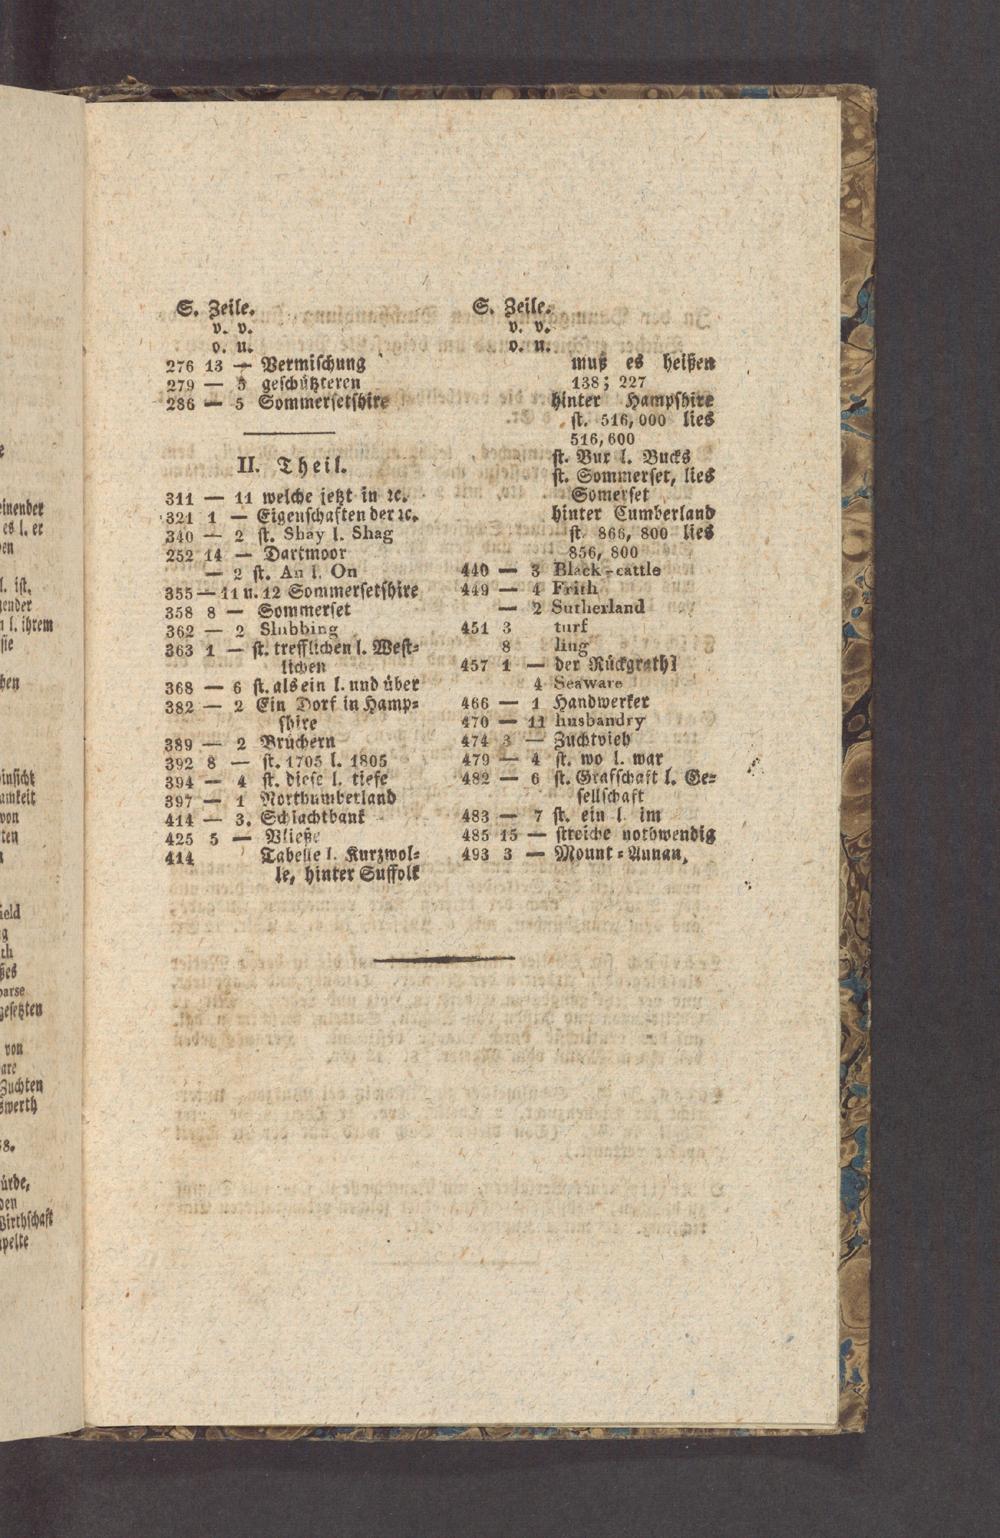 S. Zeile.
v. v.
o. u.
276 13 — Vermischung
279 — 5 geschützteren
286 — 5 Sommersetshire
II. Theil.
311 — 11 welche jetzt in ꝛc.
321 1 — Eigenschaften der ꝛc.
340 — 2 st. Shay l. Shag
252 14 — Dartmoor
— 2 st. An l. On
355 — 11 u. 12 Sommersetshire
358 8 — Sommerset
362 — 2 Slubbing
363 1 — st. trefflichen l. West⸗
lichen
368 — 6 st. als ein l. und über
382 — 2 Ein Dorf in Hamp⸗
shire
389 — 2 Brüchern
392 8 — st. 1705 l. 1805
394 — 4 st. diese l. tiefe
397 — 1 Northumberland
414 — 3. Schlachtbank
425 5 — Vließe
414 Tabelle l. Kurzwol⸗
le, hinter Suffolk
S. Zeile.
v. v.
o. u.
muß es heißen
138; 227
hinter Hampshire
st. 516,000 lies
516,600
st. Bux l. Bucks
st. Sommerset, lies
Somerset
hinter Cumberland
st. 866, 800 lies
856, 800
440 — 3 Black-cattle
449 — 4 Frith
— 2 Sutherland
451 3 turf
8 ling
457 1 — der Rückgrath
4 Seaware
466 — 1 Handwerker
470 — 11 husbandry
474 3 — Zuchtvieh
479 — 4 st. wo l. war
482 — 6 st. Grafschaft l. Ge⸗
sellschaft
483 — 7 st. ein l. im
485 15 — streiche nothwendig
493 3 — Mount⸗Annan,